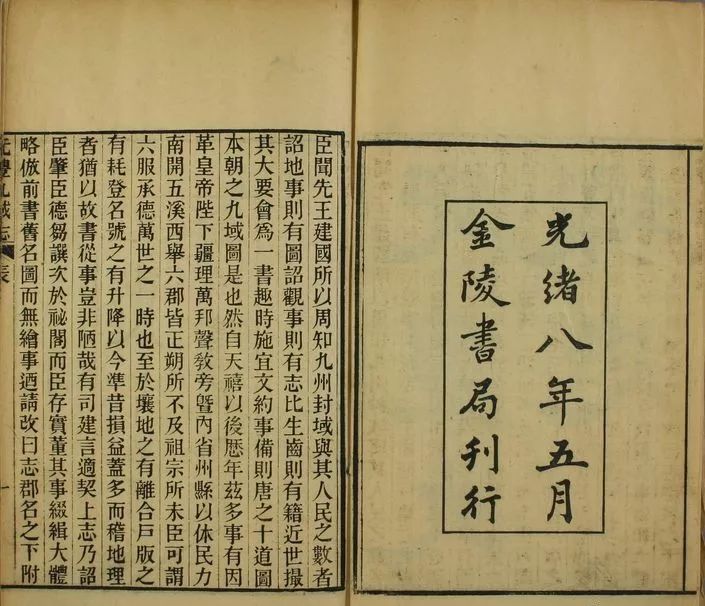 光緒八年五月
金陵書局刊行
臣聞先王建國所以周知九州封域與其人民之數者
詔地事則有圖詔觀事則有志比生齒則有籍近世撮
其大要會爲一書趣時施宜文約事備則唐之十道圖
本朝之九域圖是也然自天禧以後歷年茲多事有因
革皇帝陛下疆理萬邦聲敎旁曁內省州縣以休民力
南開五溪西舉六郡皆正朔所不及祖宗所未臣可謂
六服承德萬世之一時也至於壤地之有離合戸版之
有耗登名號之有升降以今準昔損益蓋多而稽地理
者猶以故書從事豈非陋哉有司建言適契上志乃詔
臣肇臣德芻譔次於祕閣而臣存實董其事綴緝大體
略倣前書舊名圖而無繪事迺請改曰志郡名之下附
元豐九域志 表 一